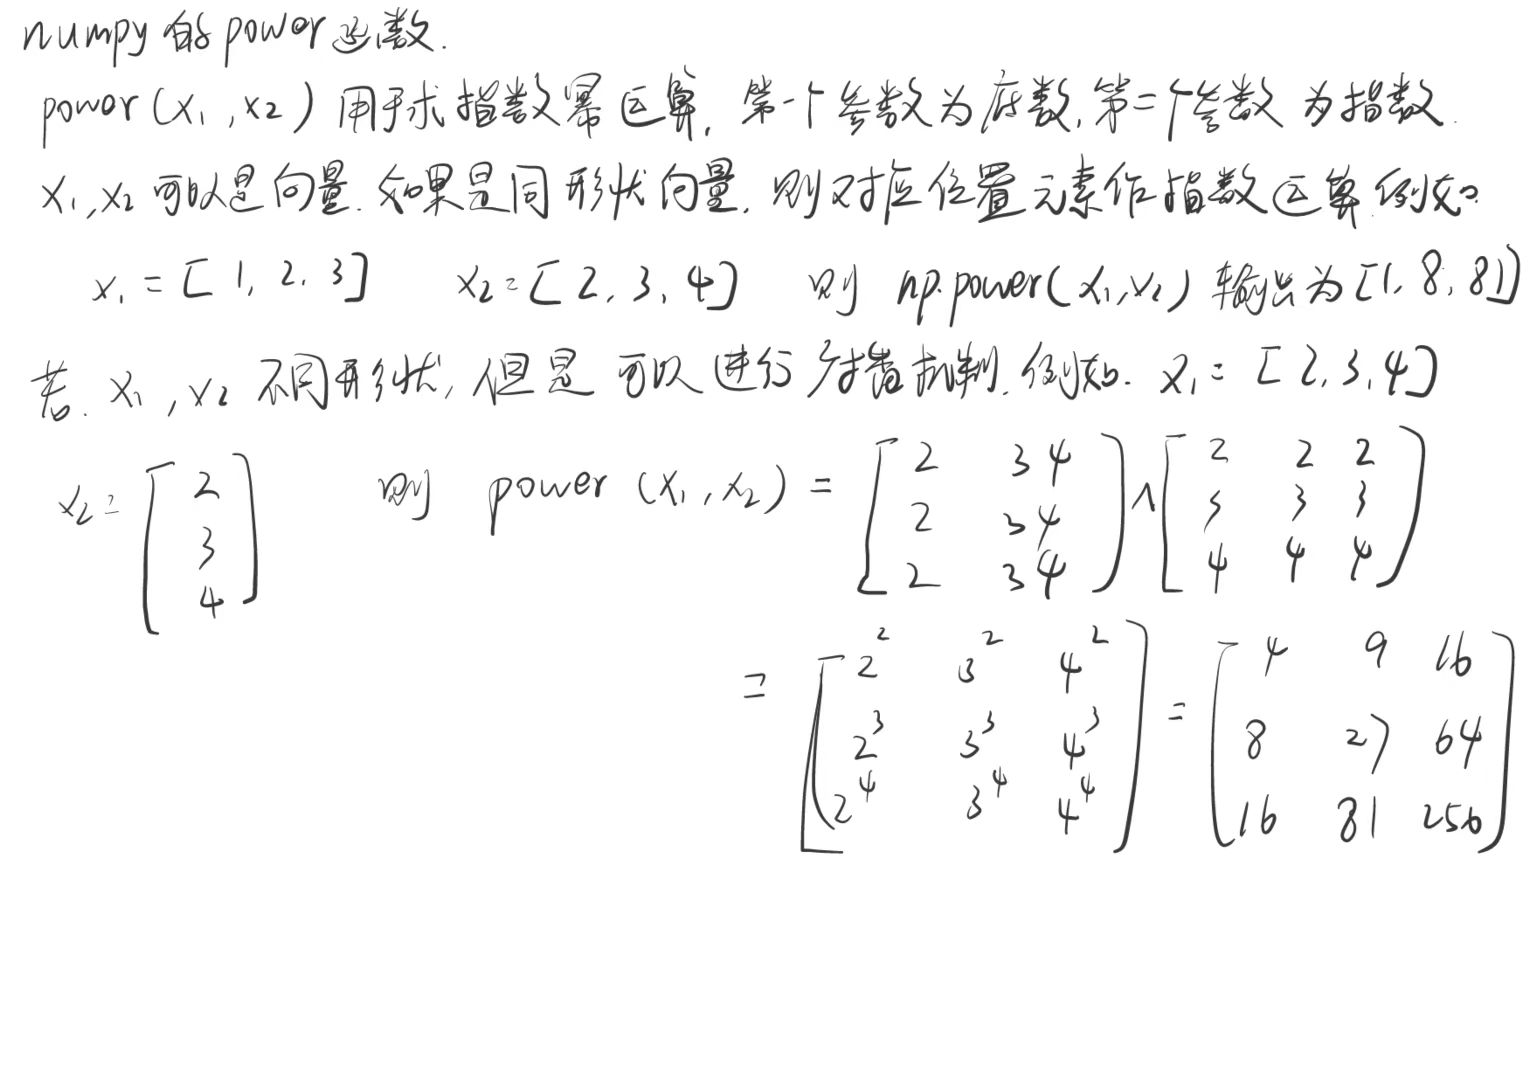 numpy的power函数.
power(x₁,x₂)用于求指数幂运算,第一个参数为底数,第二个参数为指数.
x₁,x₂可以是向量.如果是同形状向量,则对应位置元素作指数运算.例如
x₁=[1,2,3] x₂=[2,3,4] 则 np.power(x₁,x₂)输出为[1,8,81]
若.x₁,x₂不同形状,但是可以进行广播机制.例如. x₁=[2,3,4]
x₂= [2 3 4] 则 power(x₁,x₂) = [2 3 4 2 3 4 2 3 4] ∧ [2 2 2 3 3 3 4 4 4]
= [2² 3² 4² 2³ 3³ 4³ 2⁴ 3⁴ 4⁴] = [4 9 16 8 27 64 16 81 256]